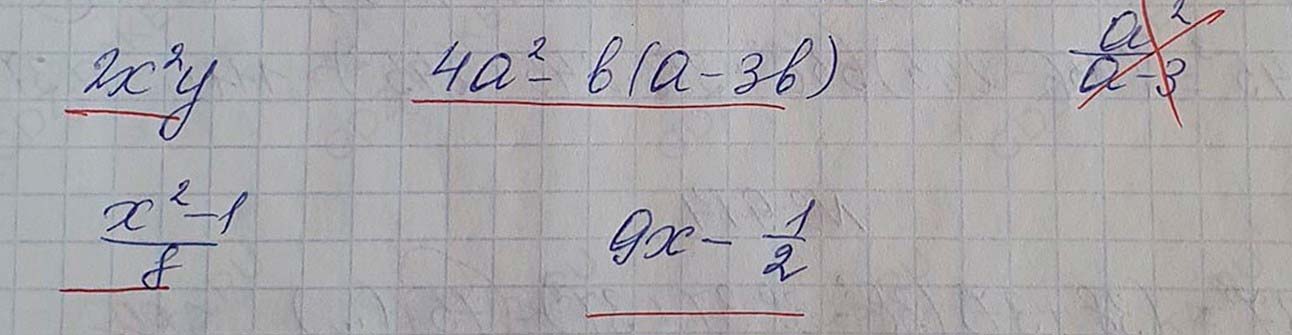 2x²y 4a² - b(a - 3b) a²/(a - 3)
(x² - 1)/8 9x - 1/2